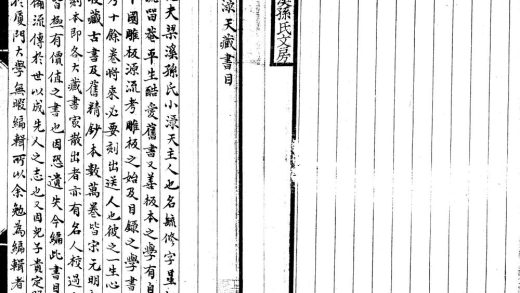 溪孫氏文房
淥天藏書目
夫梁溪孫氏小淥天主人也名毓修字星
留菴平生酷愛舊書又善板本之學有自
中國雕板源流考雕板之始及目錄之學書
考十餘卷將來必要刻出送人也彼之一生心
收藏古書及舊精鈔本數萬卷皆宋元明
刻本即各大藏書家散出者亦有名人校過
皆極有價值之書也因恐遺失今編此書目
備流傳於世以成先人之志也又因兒子貴定
於厦門大學無暇編輯所以余勉為編輯者